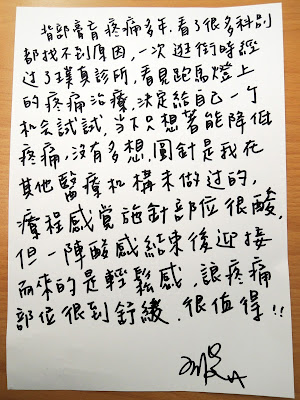 背部膏肓疼痛多年,看了很多科別
都找不到原因,一次逛街時經
過了璞真診所,看見跑馬燈上
的疼痛治療,決定給自己一个
机会試試,当下只想著能降低
疼痛,沒有多想,圓針是我在
其他醫療机構未做过的,
療程感覚施針部位很酸,
但一陣酸感結束後迎接
而來的是輕鬆感,讓疼痛
部位很到舒緩,很值得!!